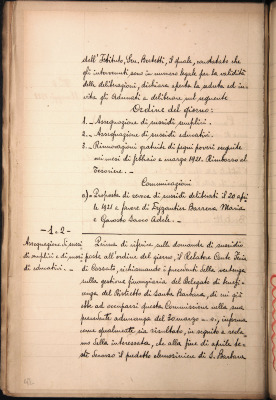 dell'Istituto, Gen. Bertotti, il quale, constatato che
gli intervenuti sono in numero legale per la validità
delle deliberazioni, dichiara aperta la seduta ed in-
vita gli Adunati a deliberare sul seguente
Ordine del giorno:
1.- Assegnazione di sussidi semplici.
2.- Assegnazione di sussidi educativi.
3.- Rinnovazioni gratuite di pegni poveri eseguite
nei mesi di febbraio e marzo 1921. Rimborso al
Tesoriere. -
Comunicazioni
a)- Proposta di revoca di sussidi deliberati il 20 apri
le 1921 a favore di Maria
e Sacco Adele. -
- 1. 2 -
Assegnazione di sussi
di semplici e di sussi
di educativi. -
Prima di riferire sulle domande di sussidio
poste all'ordine del giorno, il Relatore Conte
di Cossato, richiamando i precedenti della vertenza
sulla gestione finanziaria del Delegato di benefi-
cenza del Distretto di Santa Barbara, di cui già
ebbe ad occuparsi questa Commissione nella sua
precedente adunanza del 30 marzo u. s., informa
come qualmente sia risultato, in seguito a recla-
mo della interessata, che alla fine di aprile
il predetto di S. Barbara